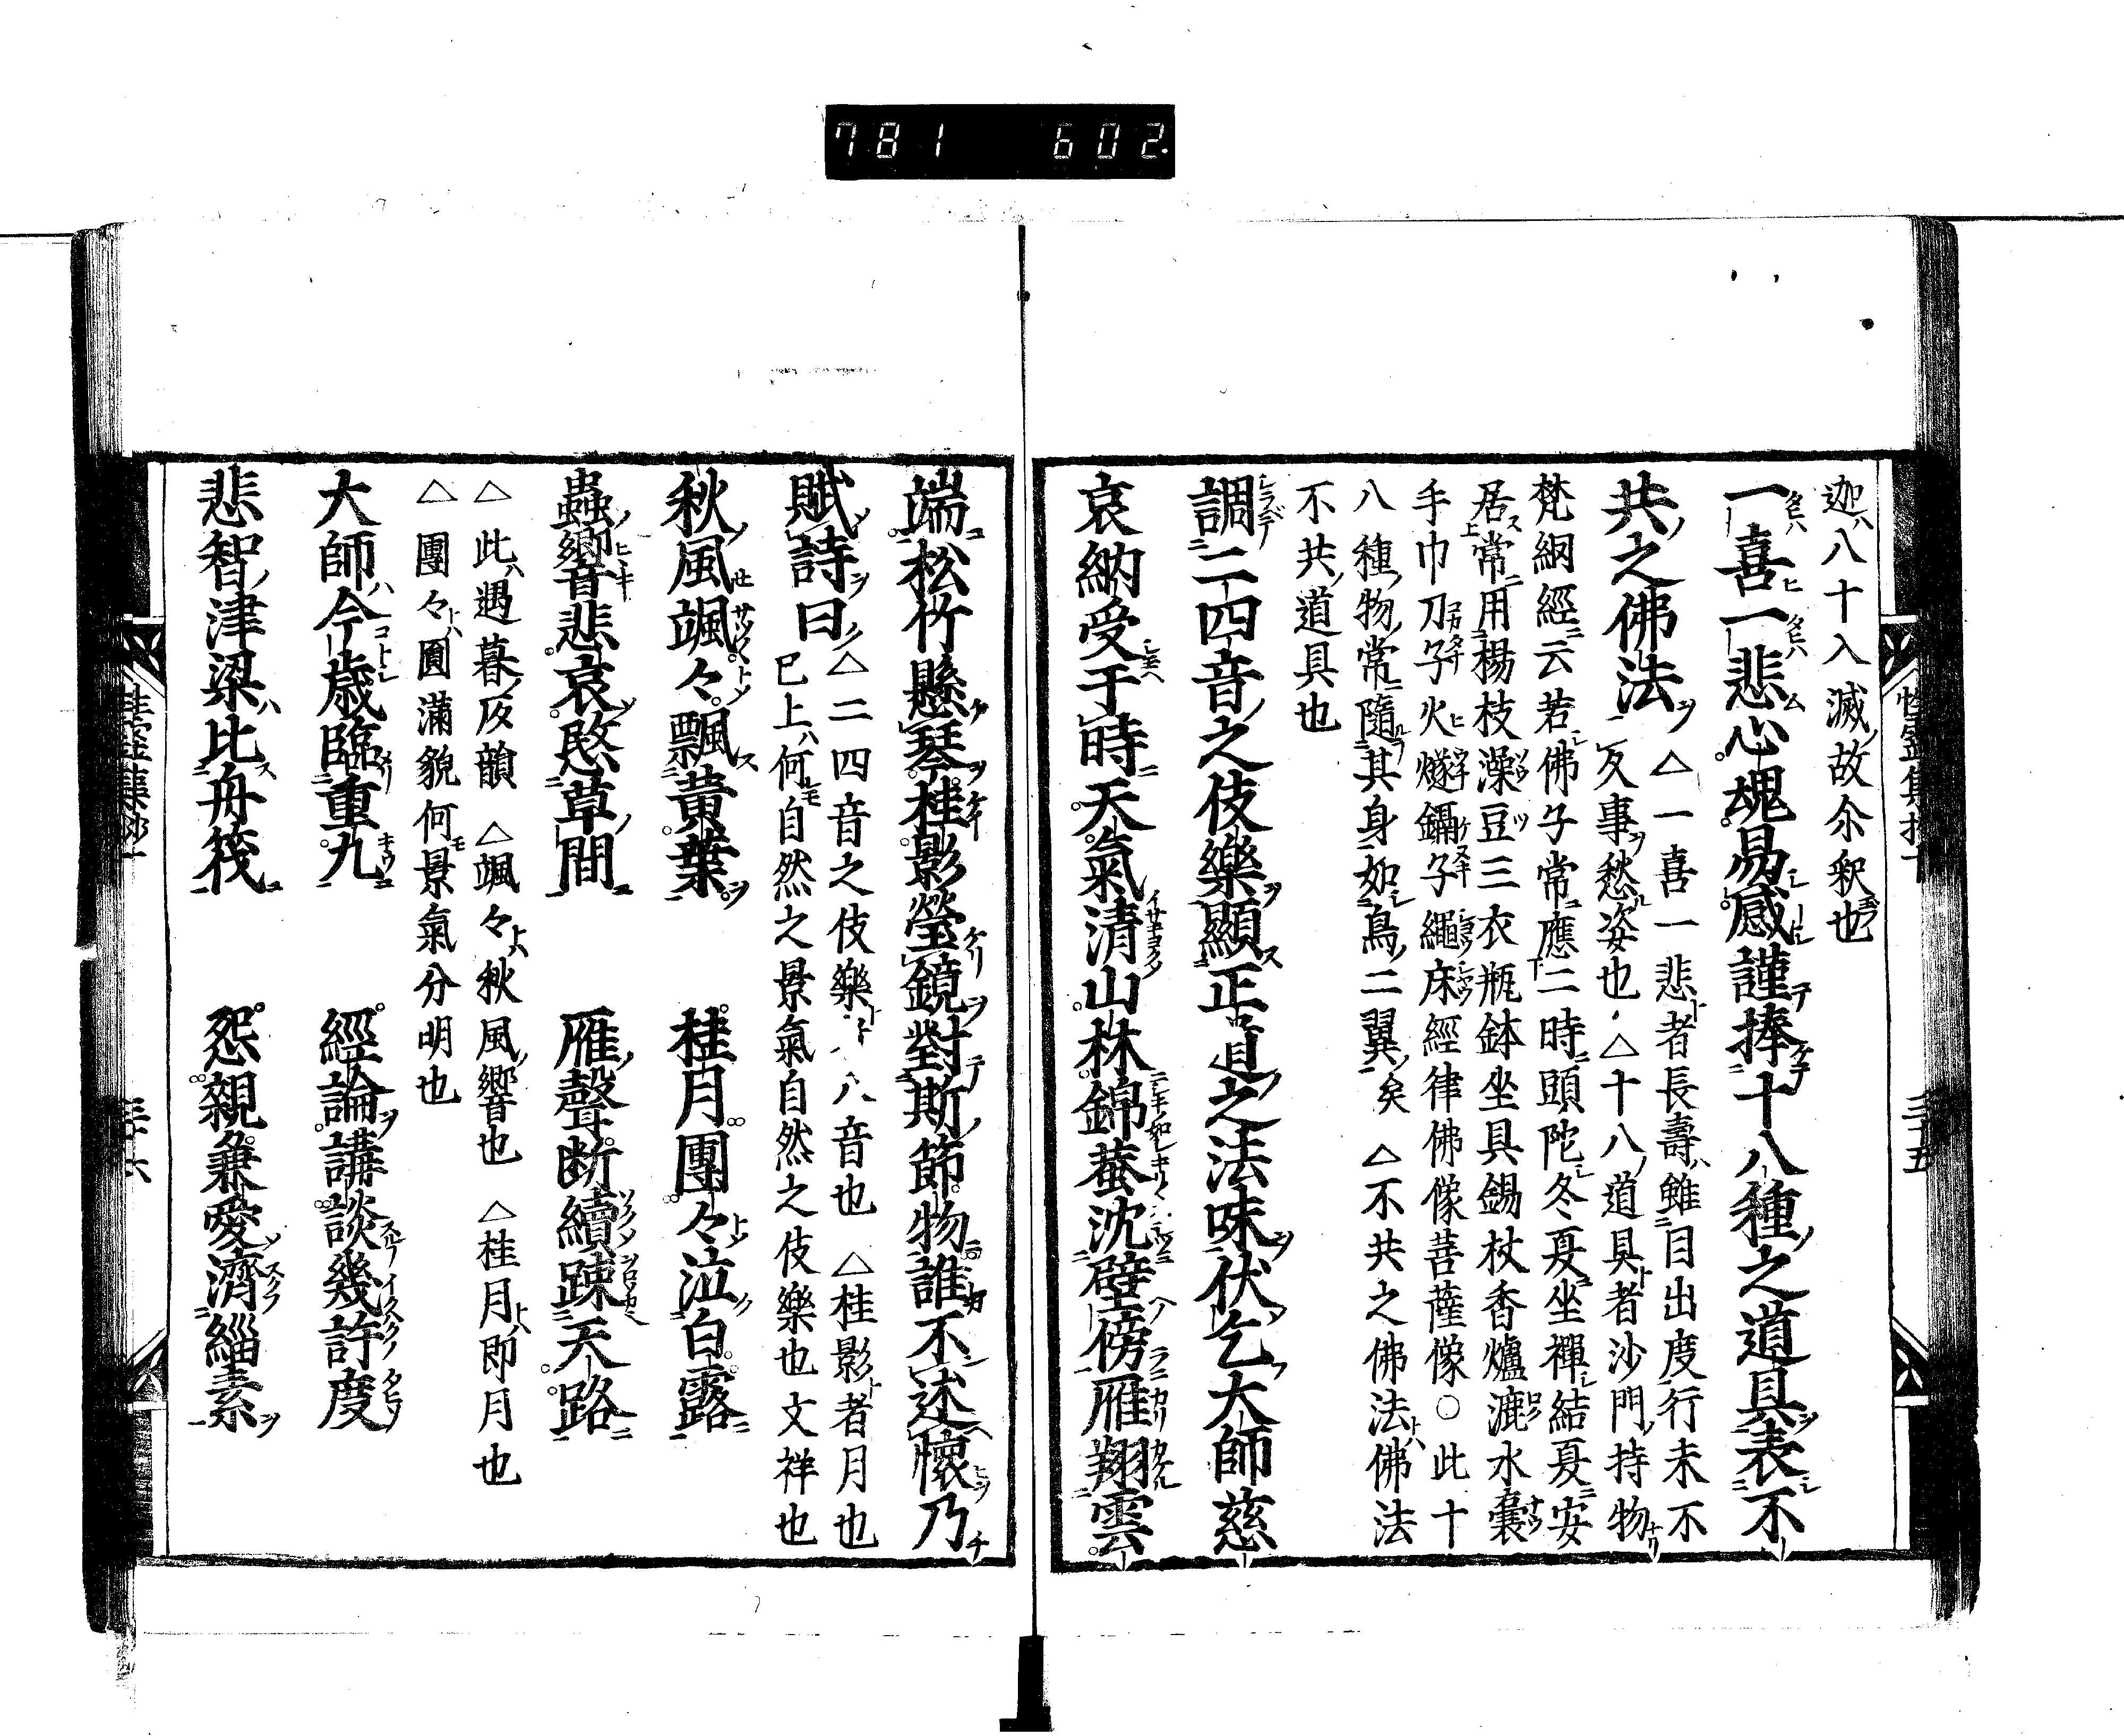 781 602
迦八十入滅故尒釈也
一喜一悲心魂易感謹捧十八種之道具表不
共之佛法
△一喜一悲者長壽雖目出度行末不
反事愁姿也△十八道具者沙門持物
梵綱經云若佛子常應二時頭陀冬夏坐禪結夏安
居常用楊枝澡豆三衣瓶鉢坐具錫杖香爐漉水囊
手巾刀子火燧鑷子繩床經律佛像菩薩像○此十
八種物常隨其身如鳥二翼矣 △不共之佛法佛法
不共道具也
調二四音之伎樂顯正道之法味伏乞大師慈
哀納受于時天氣清山林錦菴沈壁傍雁翔雲
三十五
端松竹懸琴桂影瑩鏡對斯節物誰不述懷乃
賦詩曰
△二四音之伎樂八音也 △桂影者月也
已上何自然之景氣自然之伎樂也文祥也
秋風颯々飄黃葉 桂月團々泣白露
蟲響悲哀愍草間 雁聲断續踈天路
△此遇暮反韻 △颯々秋風響也 △桂月即月也
△團々圓滿貌何景氣分明也
大師今歳臨重九 經論講談幾許度
悲智津梁比舟筏 怨親兼愛濟緇素
三十六